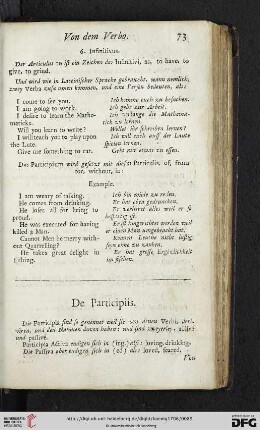 Von dem Verbo. 73
6. Infinitivus.
Der Articulus to ist ein Zeichen des Infinitivi, as, to have. to
give, to grind.
Und wird wie in Lateinischer Sprache gebraucht, wann nemlich,
zwey Verba zusammen kommen, und eine Person bedeuten, als:
I come to see you.
Ich komme euch zu besuchen.
I am going to work.
Ich gehe zur Arbeit.
I desire to learn the Mathematicks.
Ich verlange die Mathematic zu lernen.
Will you learn to write?
Wollet ihr schreiben lernen?
I will teach you to play upon
the Lute.
Ich will euch auff der Laute
spielen lernen.
Give me something to eat.
Gebt mir etwas zu essen.
Das Participium wird gesetzt mit diesen Particulis, of, from
for, without, in:
Example.
I am weary of talking.
Ich bin müde zu reden.
He comes from drinking.
Er hat eben getruncken.
He loses all for being to
proud.
Er verlieret alles weil er so
He was executed for having
killed a Man.
Er ist hingerichtet worden weil
er einen Man umgebracht hat.
Cannot Men be merry without Quarrelling?
Können Leute nicht lustig
seyn ohne zu zancken.
He takes great delight in
fishing.
Er hat grosse Ergötzlichkeit
im fischen.
De Participiis.
Die Participia sind so genennet weil sie von denen Verbis
und passivè.
Participia Activa endigen sich in (ing) als: loving, drinking.
Die Passiva aber endigen sich in (ed) als: loved, feared.
Von
DFG